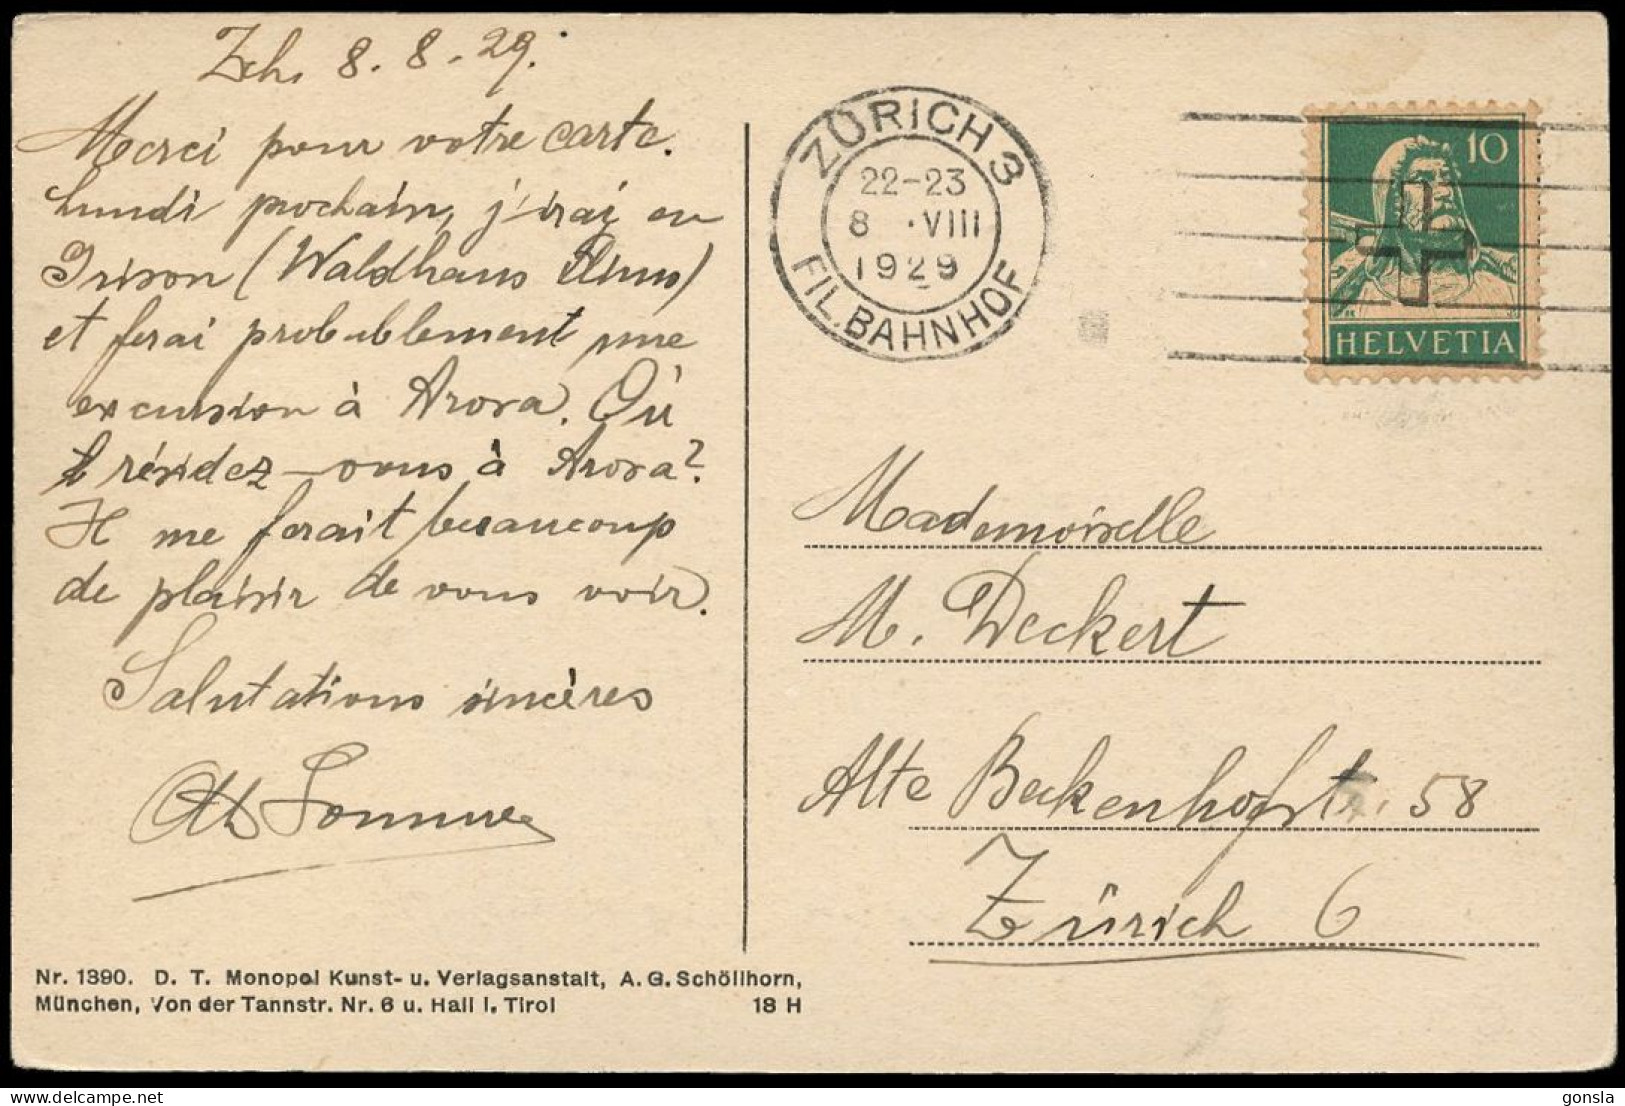 Zch. 8. 8. 29.
Merci pour votre carte.
Lundi prochain, j'irai en
Grison (Waldhaus Flims)
et ferai probablement une
excursion à Arosa. Où
résidez-vous à Arosa?
Il me ferait beaucoup
de plaisir de vous voir.
Salutations sincères
Sommer
Nr. 1390. D. T. Monopol Kunst- u. Verlagsanstalt, A. G. Schöllhorn,
München, Von der Tannstr. Nr. 6 u. Hall i. Tirol 18 H
ZÜRICH 3
22-23
8 .VIII
1929
FIL. BAHNHOF
10
HELVETIA
Mademoiselle
M. Deckert
Alte Beckenhofstr. 58
Zürich 6
gonsla